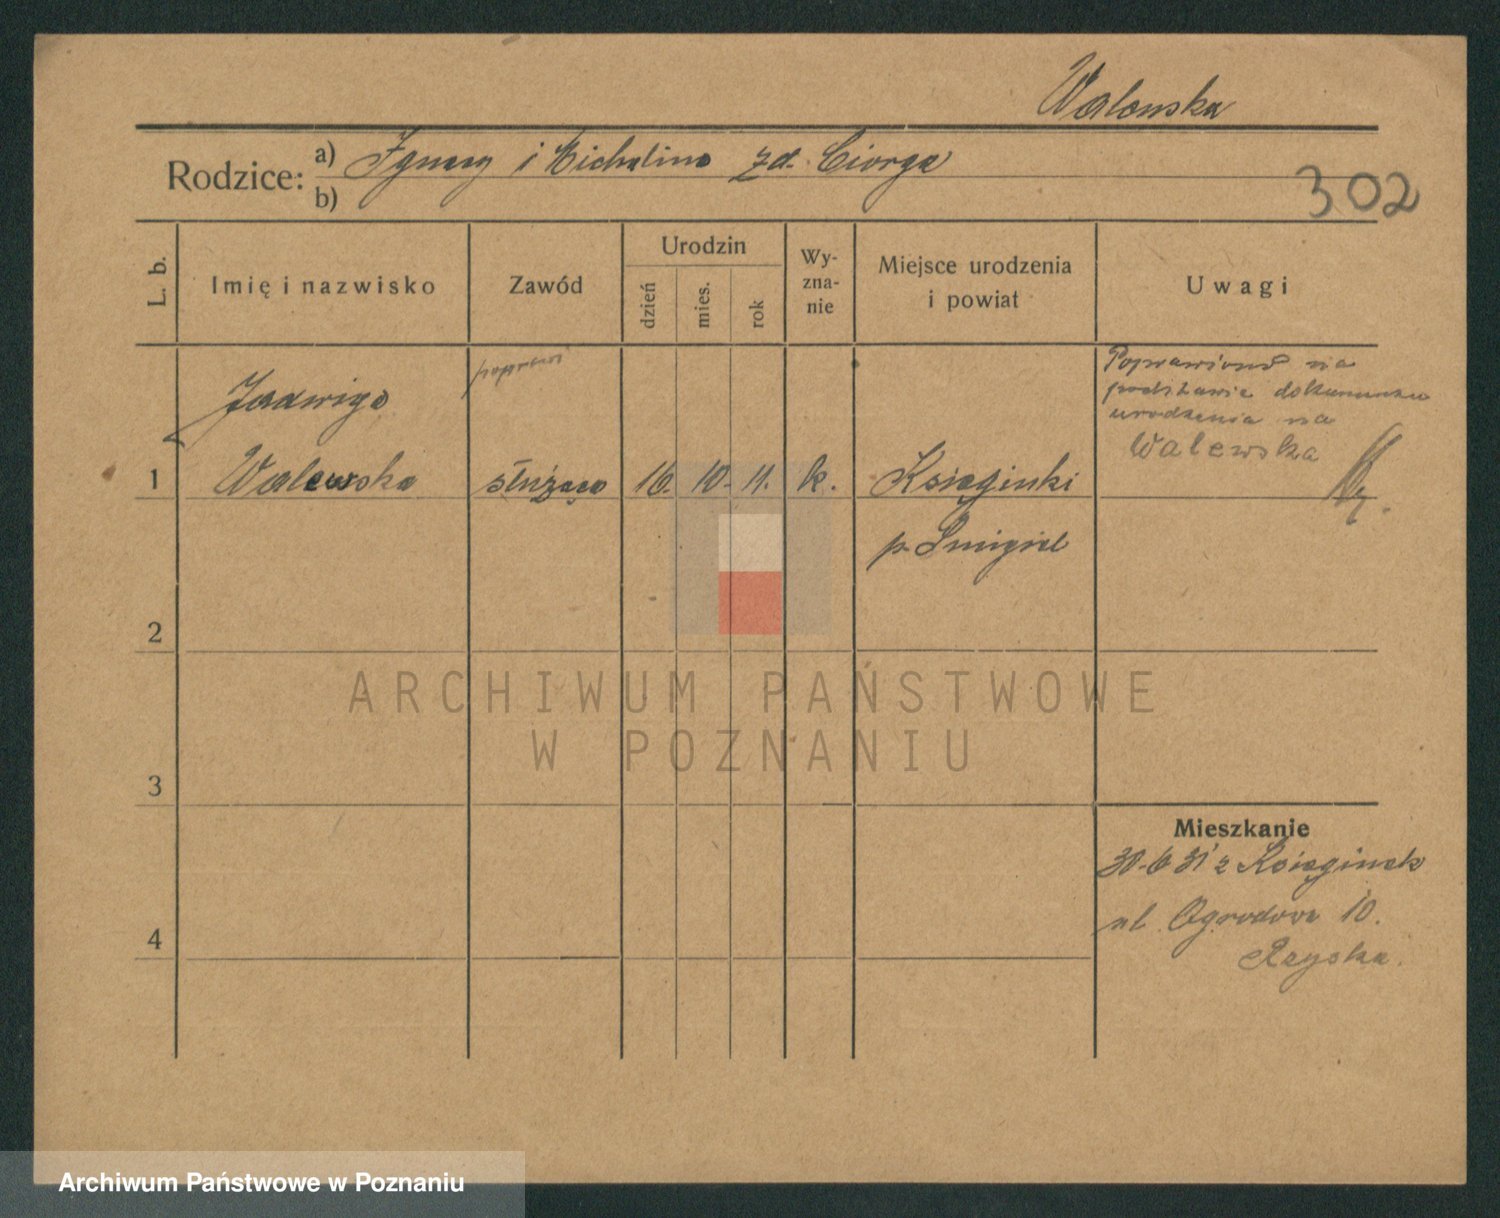 Walewska
Rodzice: a) Ignacy i Michalina zd. Ciorga
b)
302
L. b.
Imię i nazwisko
Zawód
Urodzin
dzień
mies.
rok
Wy-
zna-
nie
Miejsce urodzenia
i powiat
Uwagi
Jadwiga
Poprawiono na
podstawie dokumentu
urodzenia na
Walewska
1 Walewska służąca 16. 10. 11. k. Księginki
p. Śmigiel
2
ARCHIWUM PAŃSTWOWE
W POZNANIU
3
Mieszkanie
30-6 31 z Księginek
ul. Ogrodowa 10.
4
Archiwum Państwowe w Poznaniu